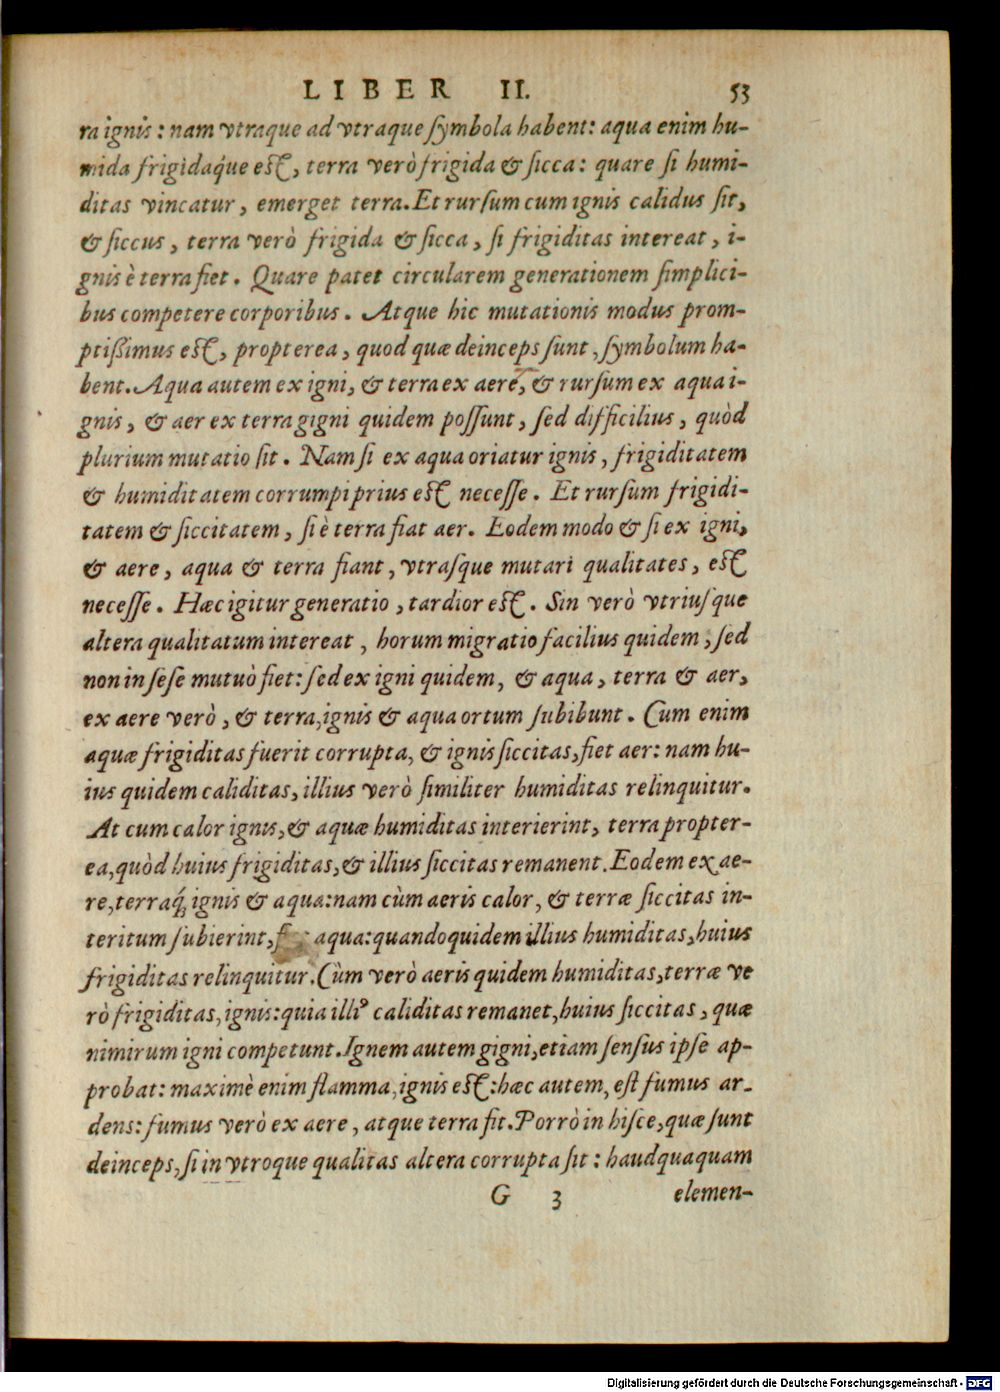 LIBER II. 53
ra ignis: nam vtraque ad vtraque ſymbola habent: aqua enim hu-
mida frigidaq́ue eſt, terra verò frigida & ſicca: quare ſi humi-
ditas vincatur, emerget terra. Et rurſum cum ignis calidus ſit,
& ſiccus, terra verò frigida & ſicca, ſi frigiditas intereat, i-
gnis è terra fiet. Quare patet circularem generationem ſimplici-
bus competere corporibus. Atque hic mutationis modus prom-
ptißimus eſt, propterea, quod quæ deinceps ſunt, ſymbolum ha-
bent. Aqua autem ex igni, & terra ex aere, & rurſum ex aqua i-
gnis, & aer ex terra gigni quidem poſſunt, ſed difficilius, quòd
plurium mutatio ſit. Nam ſi ex aqua oriatur ignis, frigiditatem
& humiditatem corrumpi prius eſt neceſſe. Et rurſum frigidi-
tatem & ſiccitatem, ſi è terra fiat aer. Eodem modo & ſi ex igni,
& aere, aqua & terra fiant, vtraſque mutari qualitates, eſt
neceſſe. Hæc igitur generatio, tardior eſt. Sin verò vtriuſque
altera qualitatum intereat, horum migratio facilius quidem, ſed
non in ſeſe mutuò fiet: ſed ex igni quidem, & aqua, terra & aer,
ex aere verò, & terra, ignis & aqua ortum ſubibunt. Cum enim
aquæ frigiditas fuerit corrupta, & ignis ſiccitas, fiet aer: nam hu-
ius quidem caliditas, illius verò ſimiliter humiditas relinquitur.
At cum calor ignis, & aquæ humiditas interierint, terra propter-
ea, quòd huius frigiditas, & illius ſiccitas remanent. Eodem ex ae-
re, terraq́; ignis & aqua: nam cùm aeris calor, & terræ ſiccitas in-
teritum ſubierint, aqua: quandoquidem illius humiditas, huius
frigiditas relinquitur. Cùm verò aeris quidem humiditas, terræ ve
rò frigiditas, ignis: quia illiꝰ caliditas remanet, huius ſiccitas, quæ
nimirum igni competunt. Ignem autem gigni, etiam ſenſus ipſe ap-
probat: maximè enim flamma, ignis eſt: hæc autem, eſt fumus ar-
dens: fumus verò ex aere, atque terra fit. Porrò in hiſce, quæ ſunt
deinceps, ſi in vtroque qualitas altera corrupta ſit: haudquaquam
G 3 elemen-
Digitalisierung gefördert durch die Deutsche Forschungsgemeinschaft - DFG